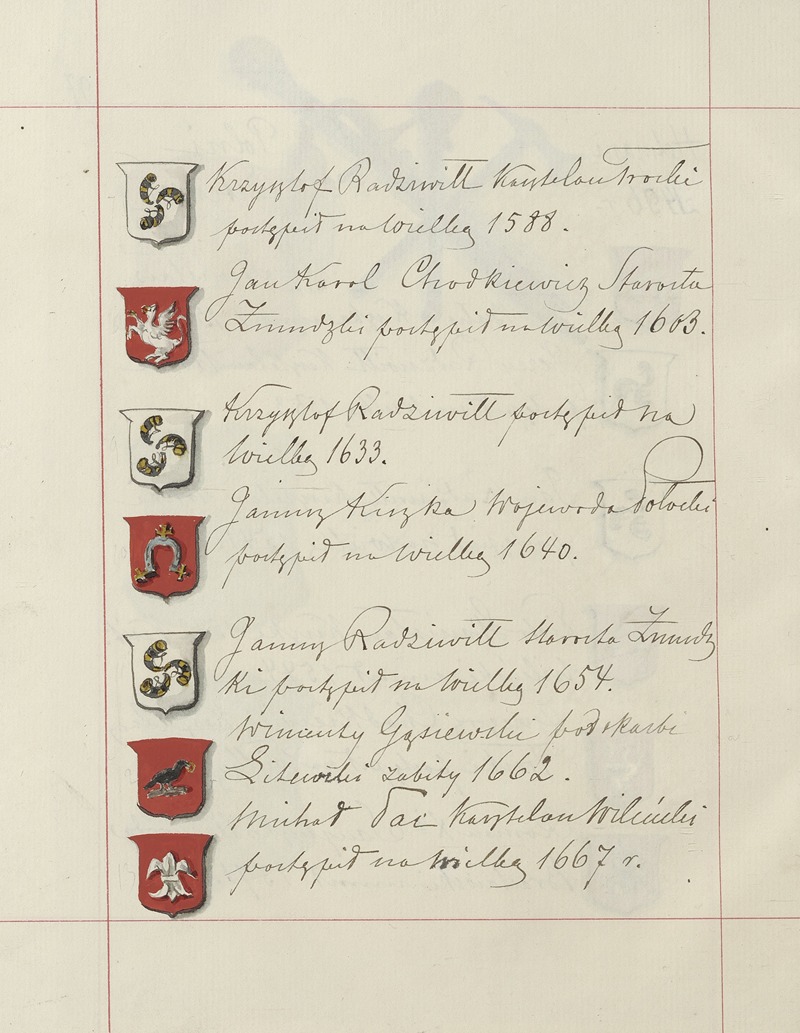 Krzysztof Radziwiłł Kasztelan Trocki
postąpił na wielką 1588.
Jan Karol Chodkiewicz Starosta
Żmudzki postąpił na wielką 1603.
Krzysztof Radziwiłł postąpił na
wielką 1633.
Janusz Kiszka Wojewoda Połocki
postąpił na wielką 1640.
Janusz Radziwiłł starosta Żmudz
ki postąpił na wielką 1654.
Wincenty Gąsiewski podskarbi
Litewski zabity 1662.
Michał Pac Kasztelan Wileński
postąpił na wielką 1667 r.